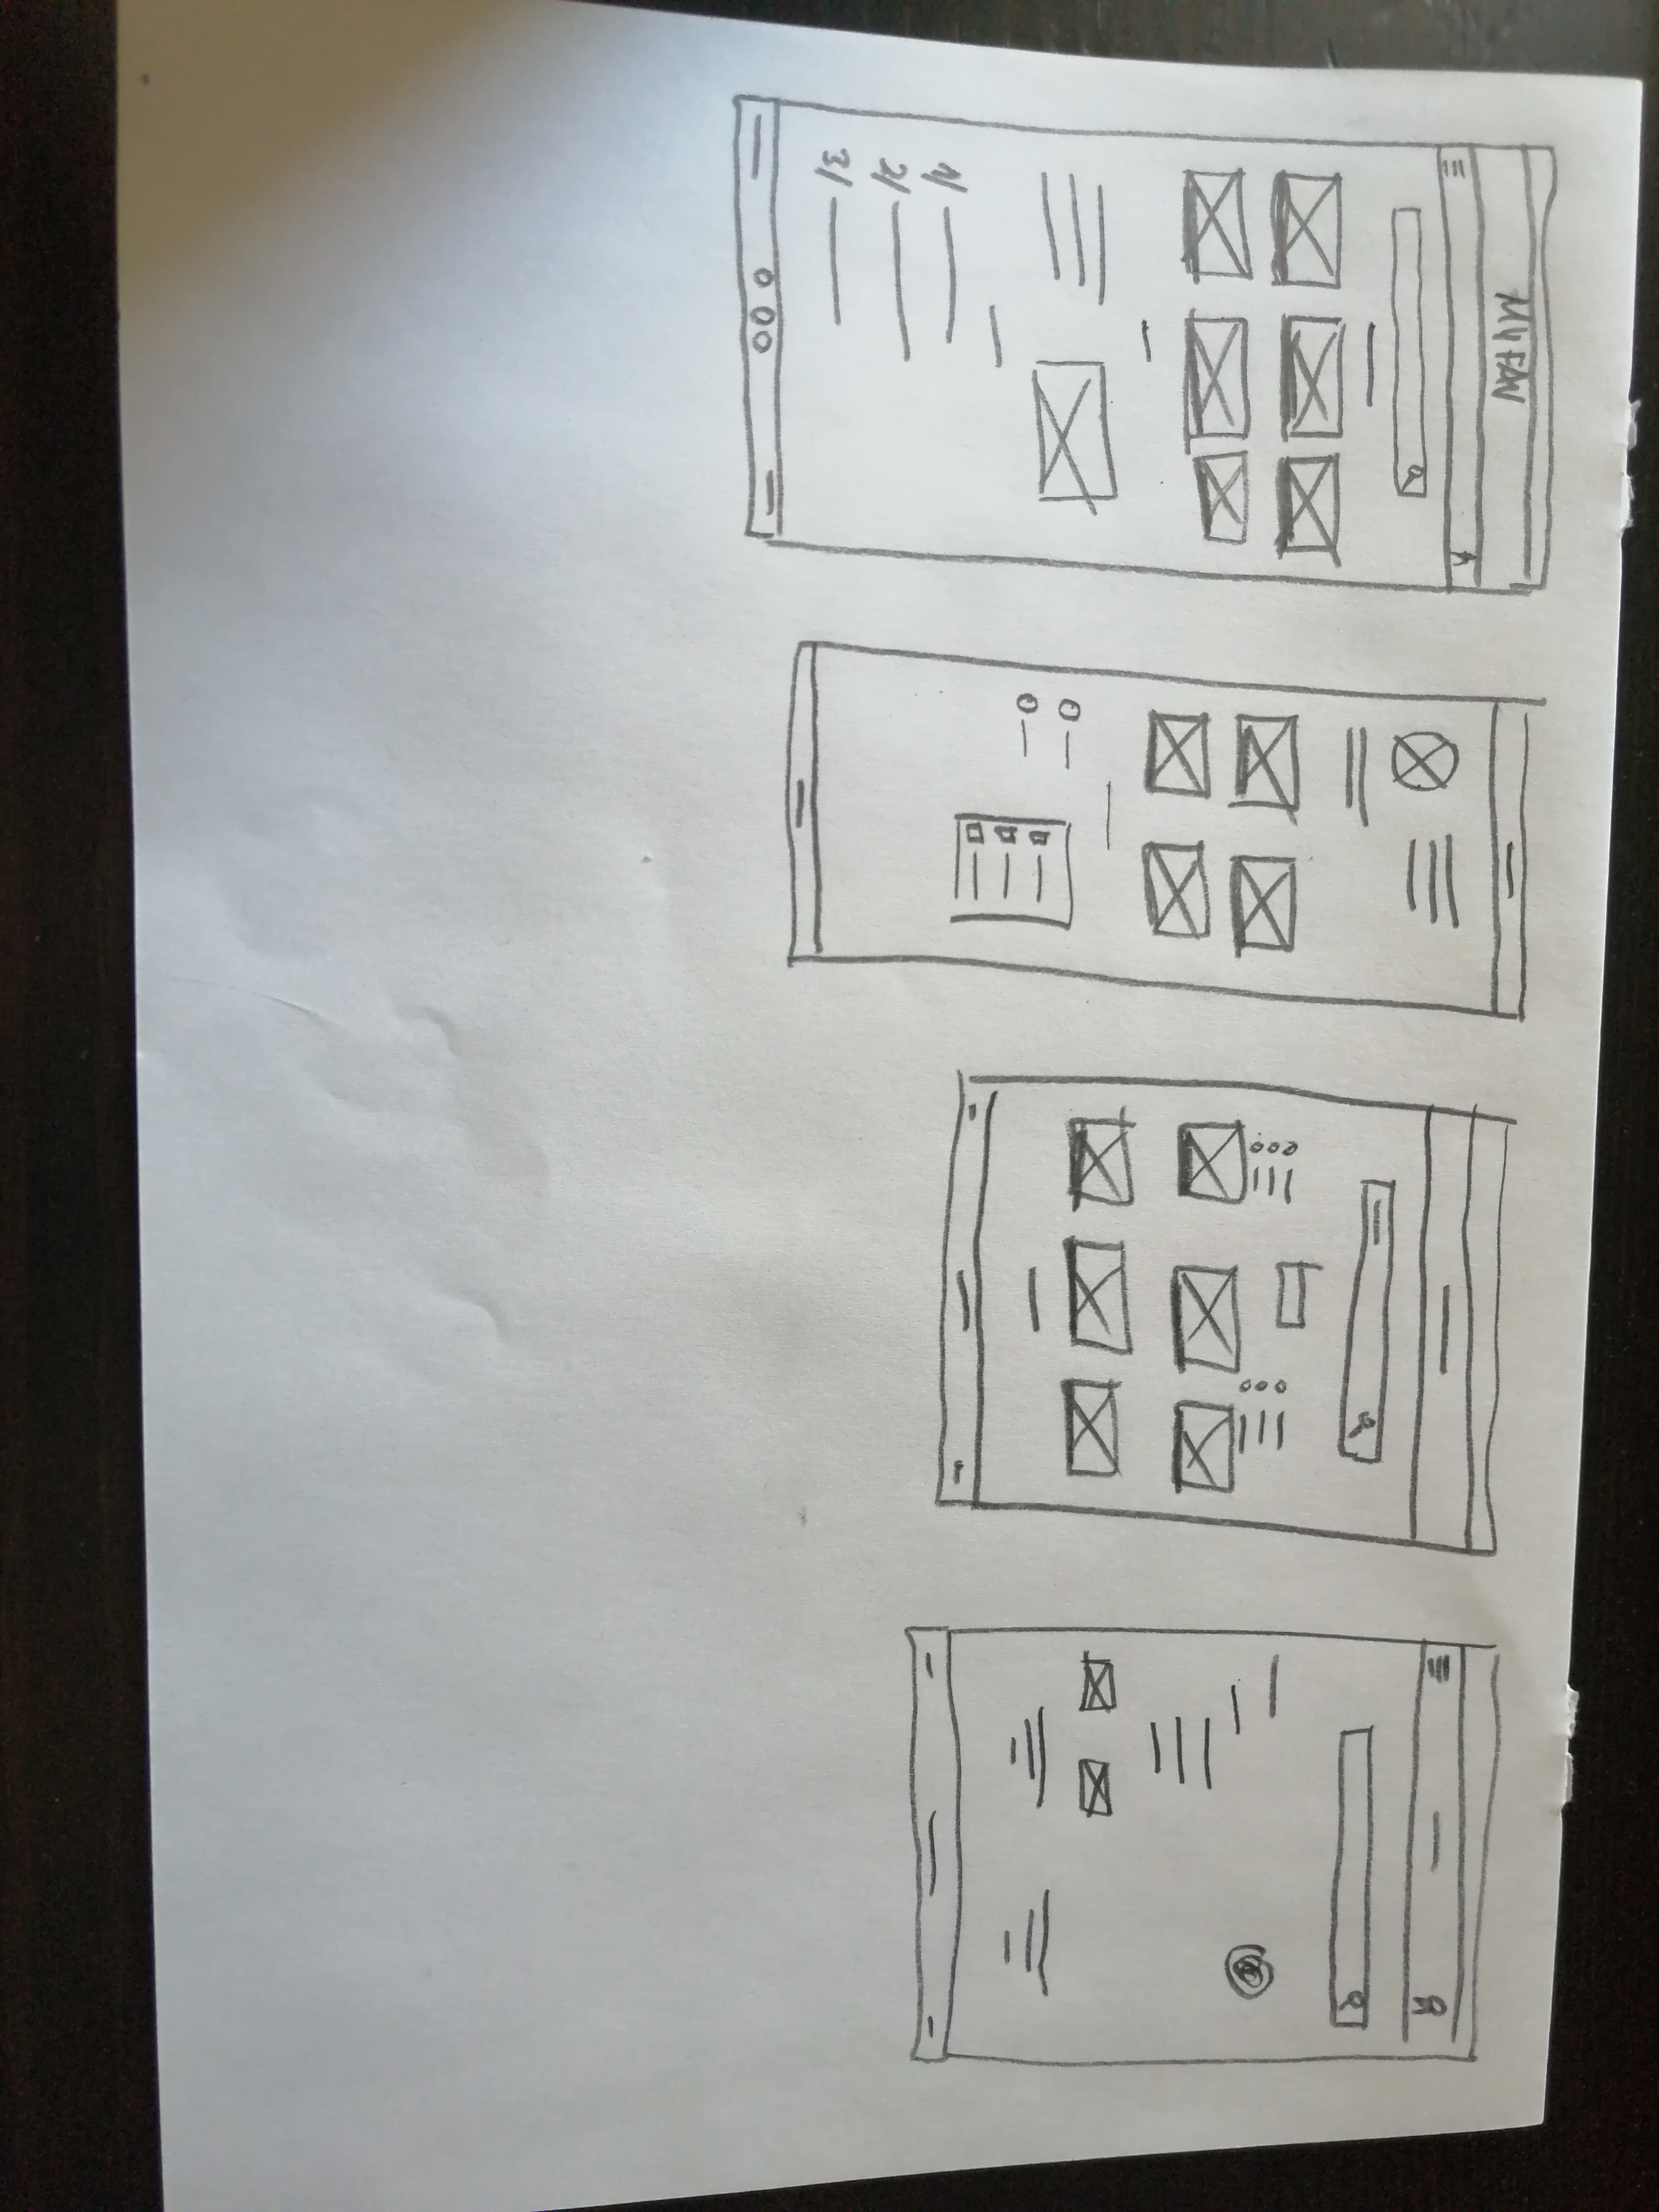 MY FAV
1/
2/
3/